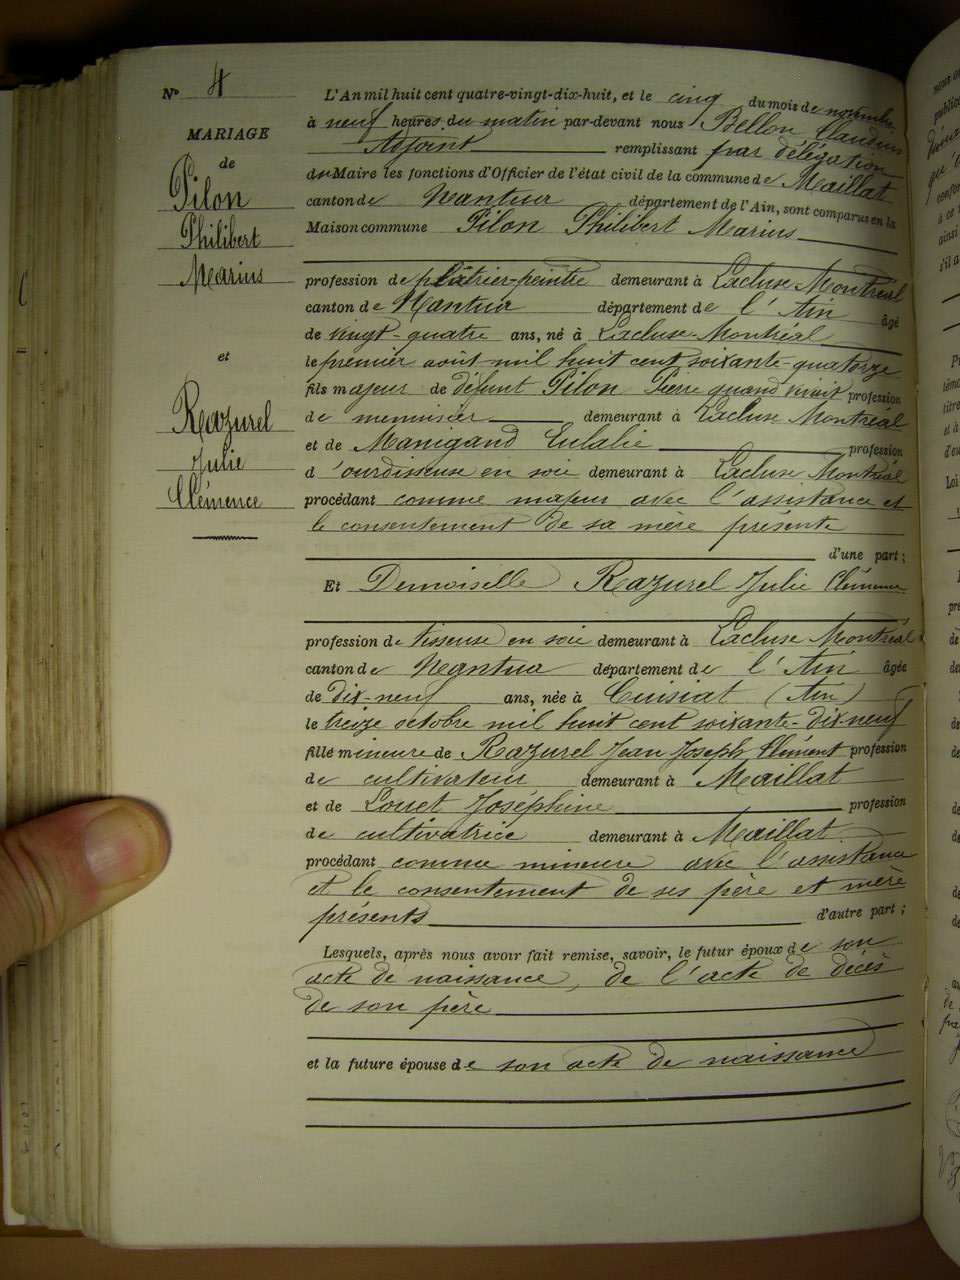 N° 4
MARIAGE
de
Pilon
Philibert
Marius
et
Razurel
Julie
Clémence
L'An mil huit cent quatre-vingt-dix-huit, et le cinq du mois de novembre
à neuf heures du matin par-devant nous Bellon Claudius
Adjoint remplissant par délégation
du Maire les fonctions d'Officier de l'état civil de la commune de Maillat
canton de Nantua département de l'Ain, sont comparus en la
Maison commune Pilon Philibert Marius
profession de plâtrier-peintre demeurant à Lacluse Montréal
canton de Nantua département de l'Ain âgé
de vingt-quatre ans, né à Lacluse-Montréal
le premier août mil huit cent soixante-quatorze
fils majeur de défunt Pilon Pierre quand vivait profession
de menuisier demeurant à Lacluse Montréal
et de Manigand Eulalie profession
d'ourdisseuse en soie demeurant à Lacluse Montréal
procédant comme majeur avec l'assistance et
le consentement de sa mère présente
d'une part ;
Et Demoiselle Razurel Julie Clémence
profession de tisseuse en soie demeurant à Lacluse Montréal
canton de Nantua département de l'Ain âgée
de dix-neuf ans, née à Cuisiat (Ain)
le treize octobre mil huit cent soixante-dix-neuf
fille mineure de Razurel Jean Joseph Clément profession
de cultivateur demeurant à Maillat
et de Louet Joséphine profession
de cultivatrice demeurant à Maillat
procédant comme mineure avec l'assistance
et le consentement de ses père et mère
présents d'autre part ;
Lesquels, après nous avoir fait remise, savoir, le futur époux de son
acte de naissance, de l'acte de décès
de son père
et la future épouse de son acte de naissance